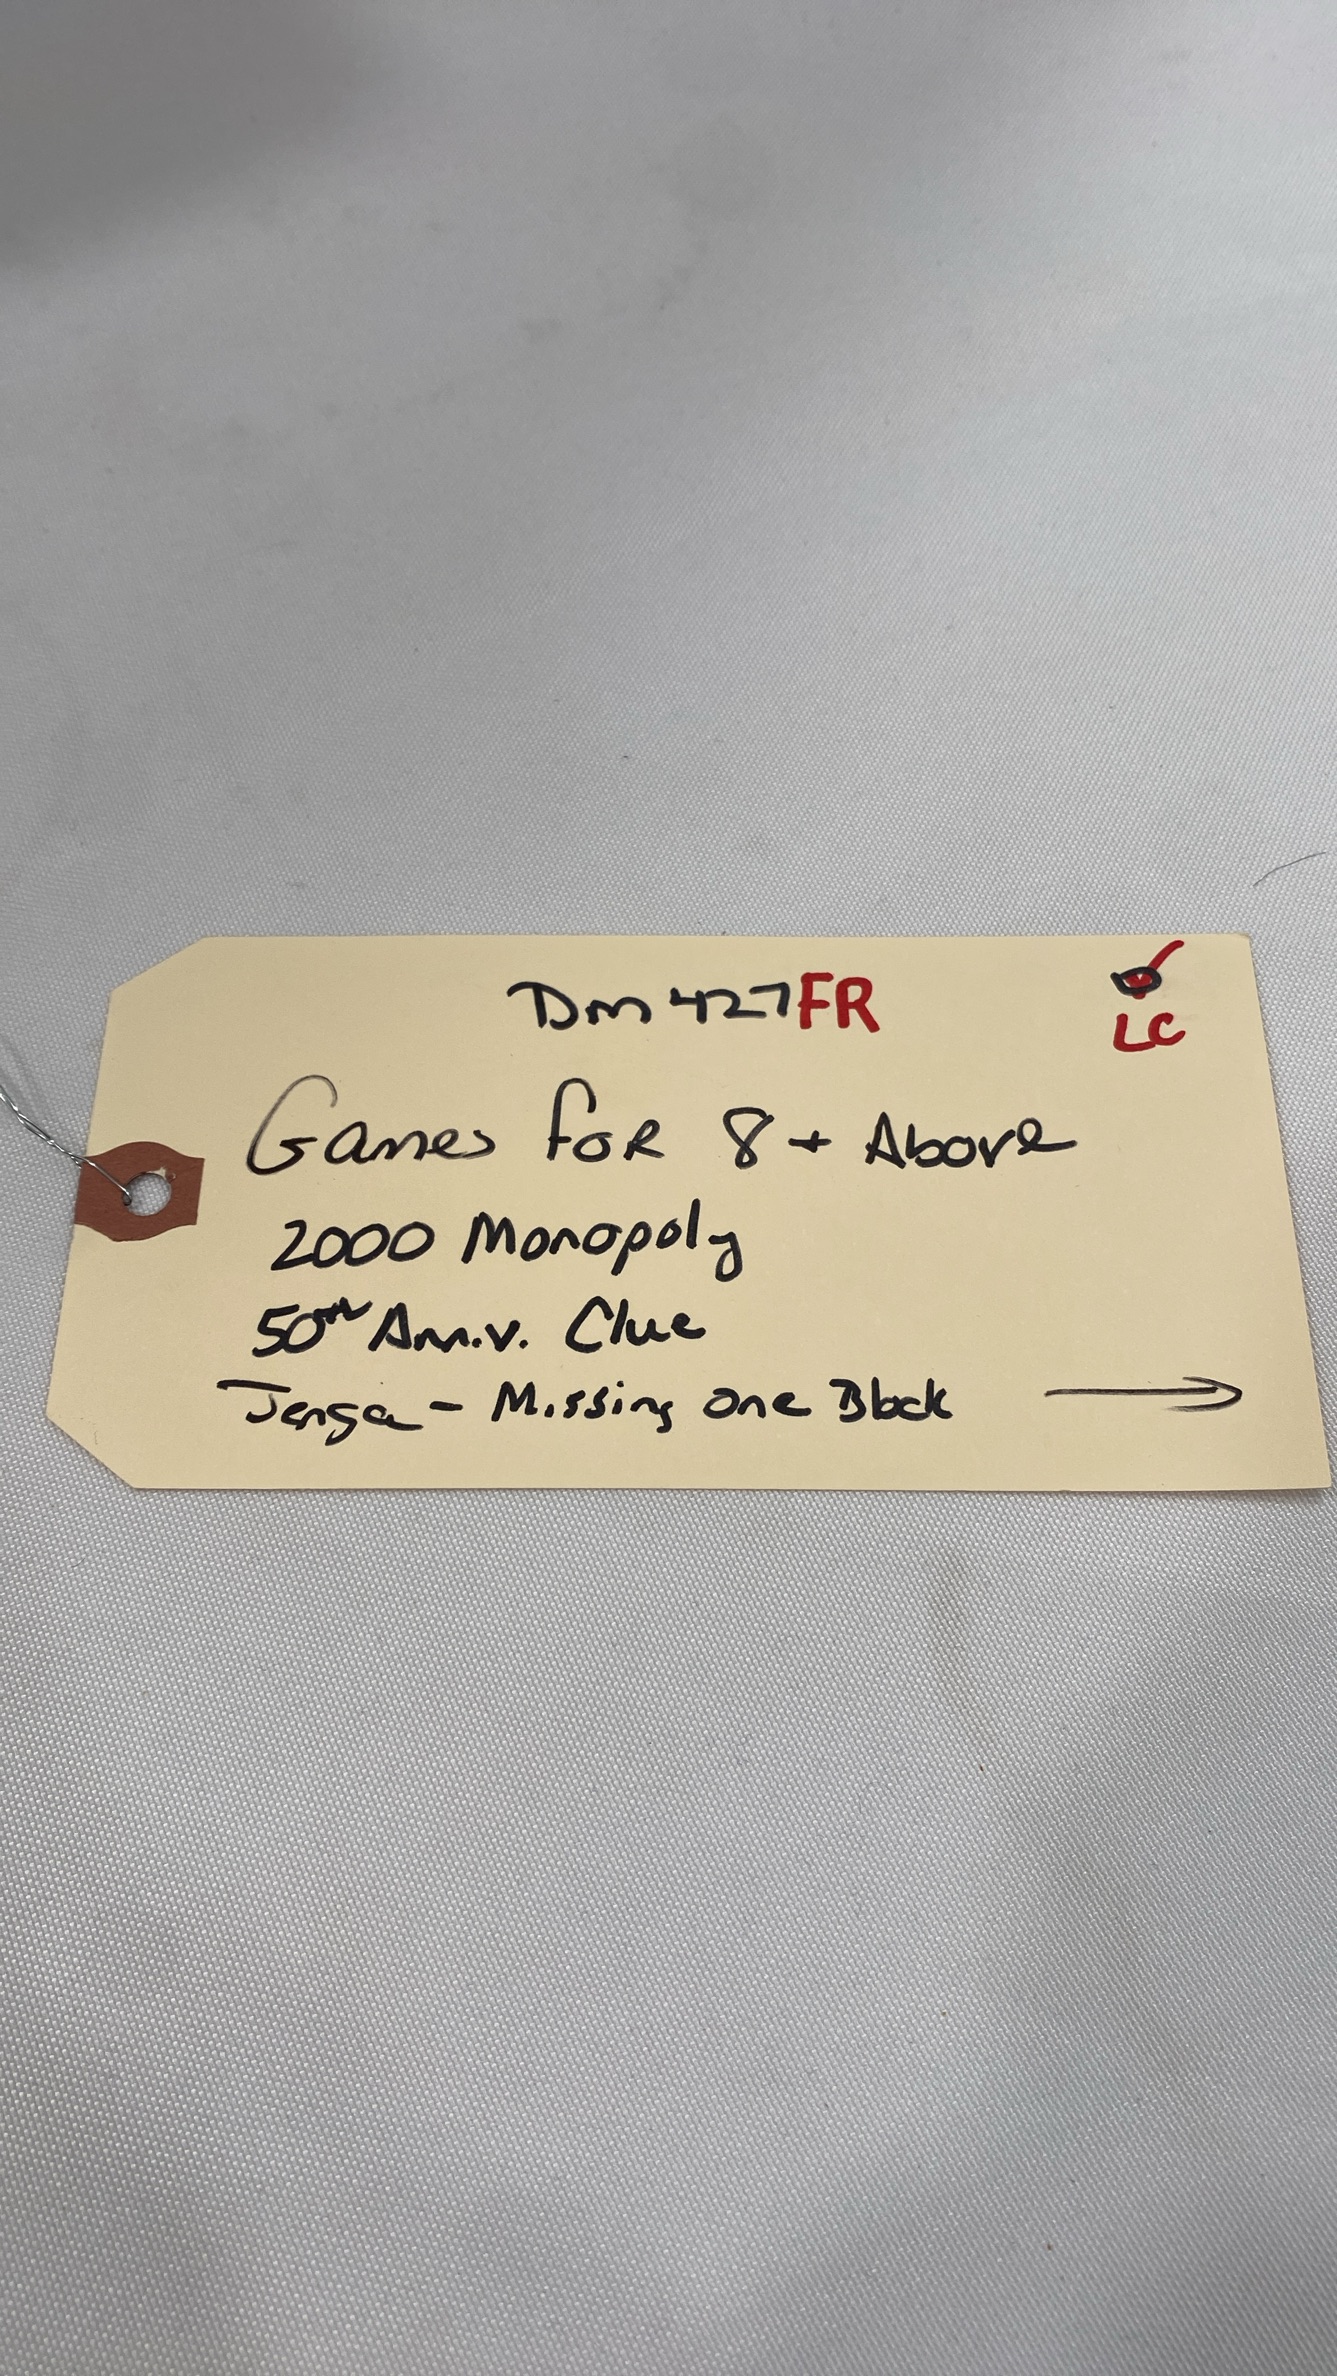 Dm427FR
LC
Games foR 8 + Above
2000 Monopoly
50th Anniv. Clue
Jenga - Missing one Block